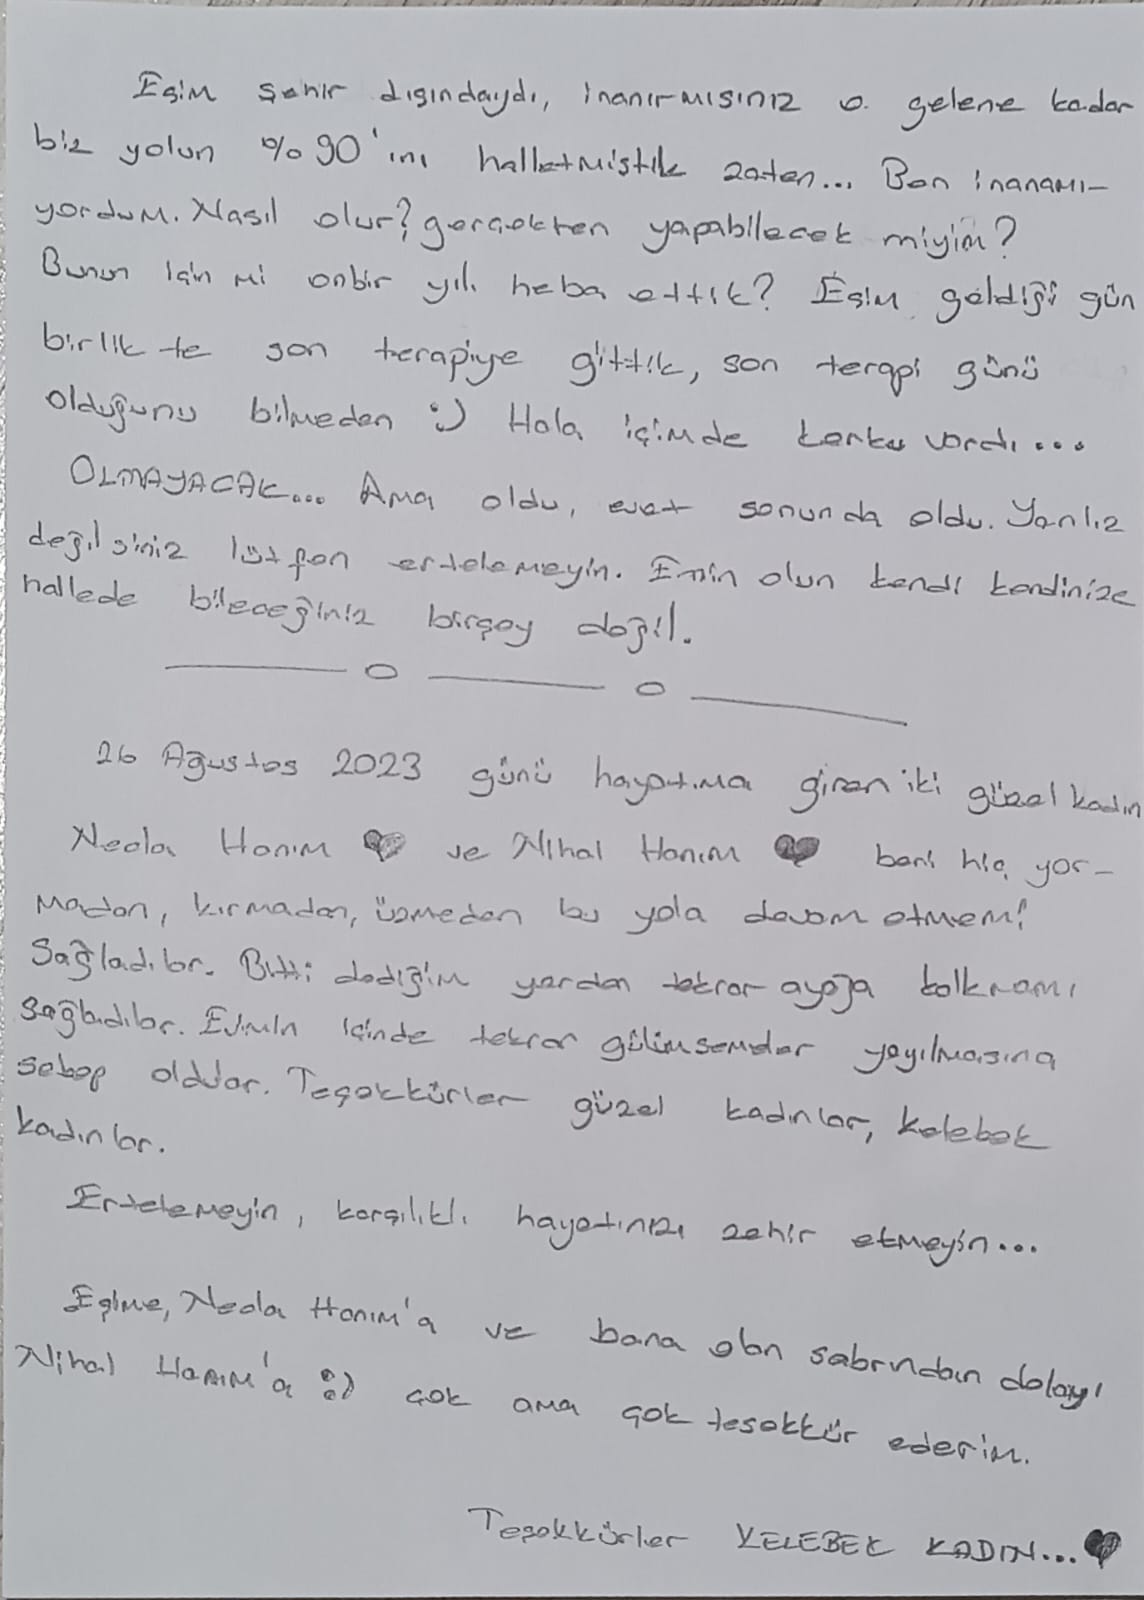 Eşim şehir dışındaydı, inanırmısınız o gelene kadar
biz yolun %90'ını halletmiştik zaten... Ben inanamı-
yordum. Nasıl olur? gerçekten yapabilecek miyim?
Bunun için mi onbir yılı heba ettik? Eşim geldiği gün
birlikte son terapiye gittik, son terapi günü
olduğunu bilmeden :) Hala içimde korku vardı...
OLMAYACAK... Ama oldu, evet sonunda oldu. Yanlız
değilsiniz lütfen ertelemeyin. Emin olun kendi kendinize
hallede bileceğiniz birşey değil.
26 Ağustos 2023 günü hayatıma giren iki güzel kadın
Necla Hanım ♥ ve Nihal Hanım ♥ beni hiç yor-
madan, kırmadan, üzmeden bu yola devam etmemi
sağladılar. Bitti dediğim yerden tekrar ayağa kalkmamı
sağladılar. Evimin içinde tekrar gülümsemeler yayılmasına
sebep oldular. Teşekkürler güzel kadınlar, kelebek
kadınlar.
Ertelemeyin, karşılıklı hayatınızı zehir etmeyin...
Eşime, Necla Hanım'a ve bana olan sabrından dolayı
Nihal Hanım'a :) çok ama çok teşekkür ederim.
Teşekkürler KELEBEK KADIN... ♥